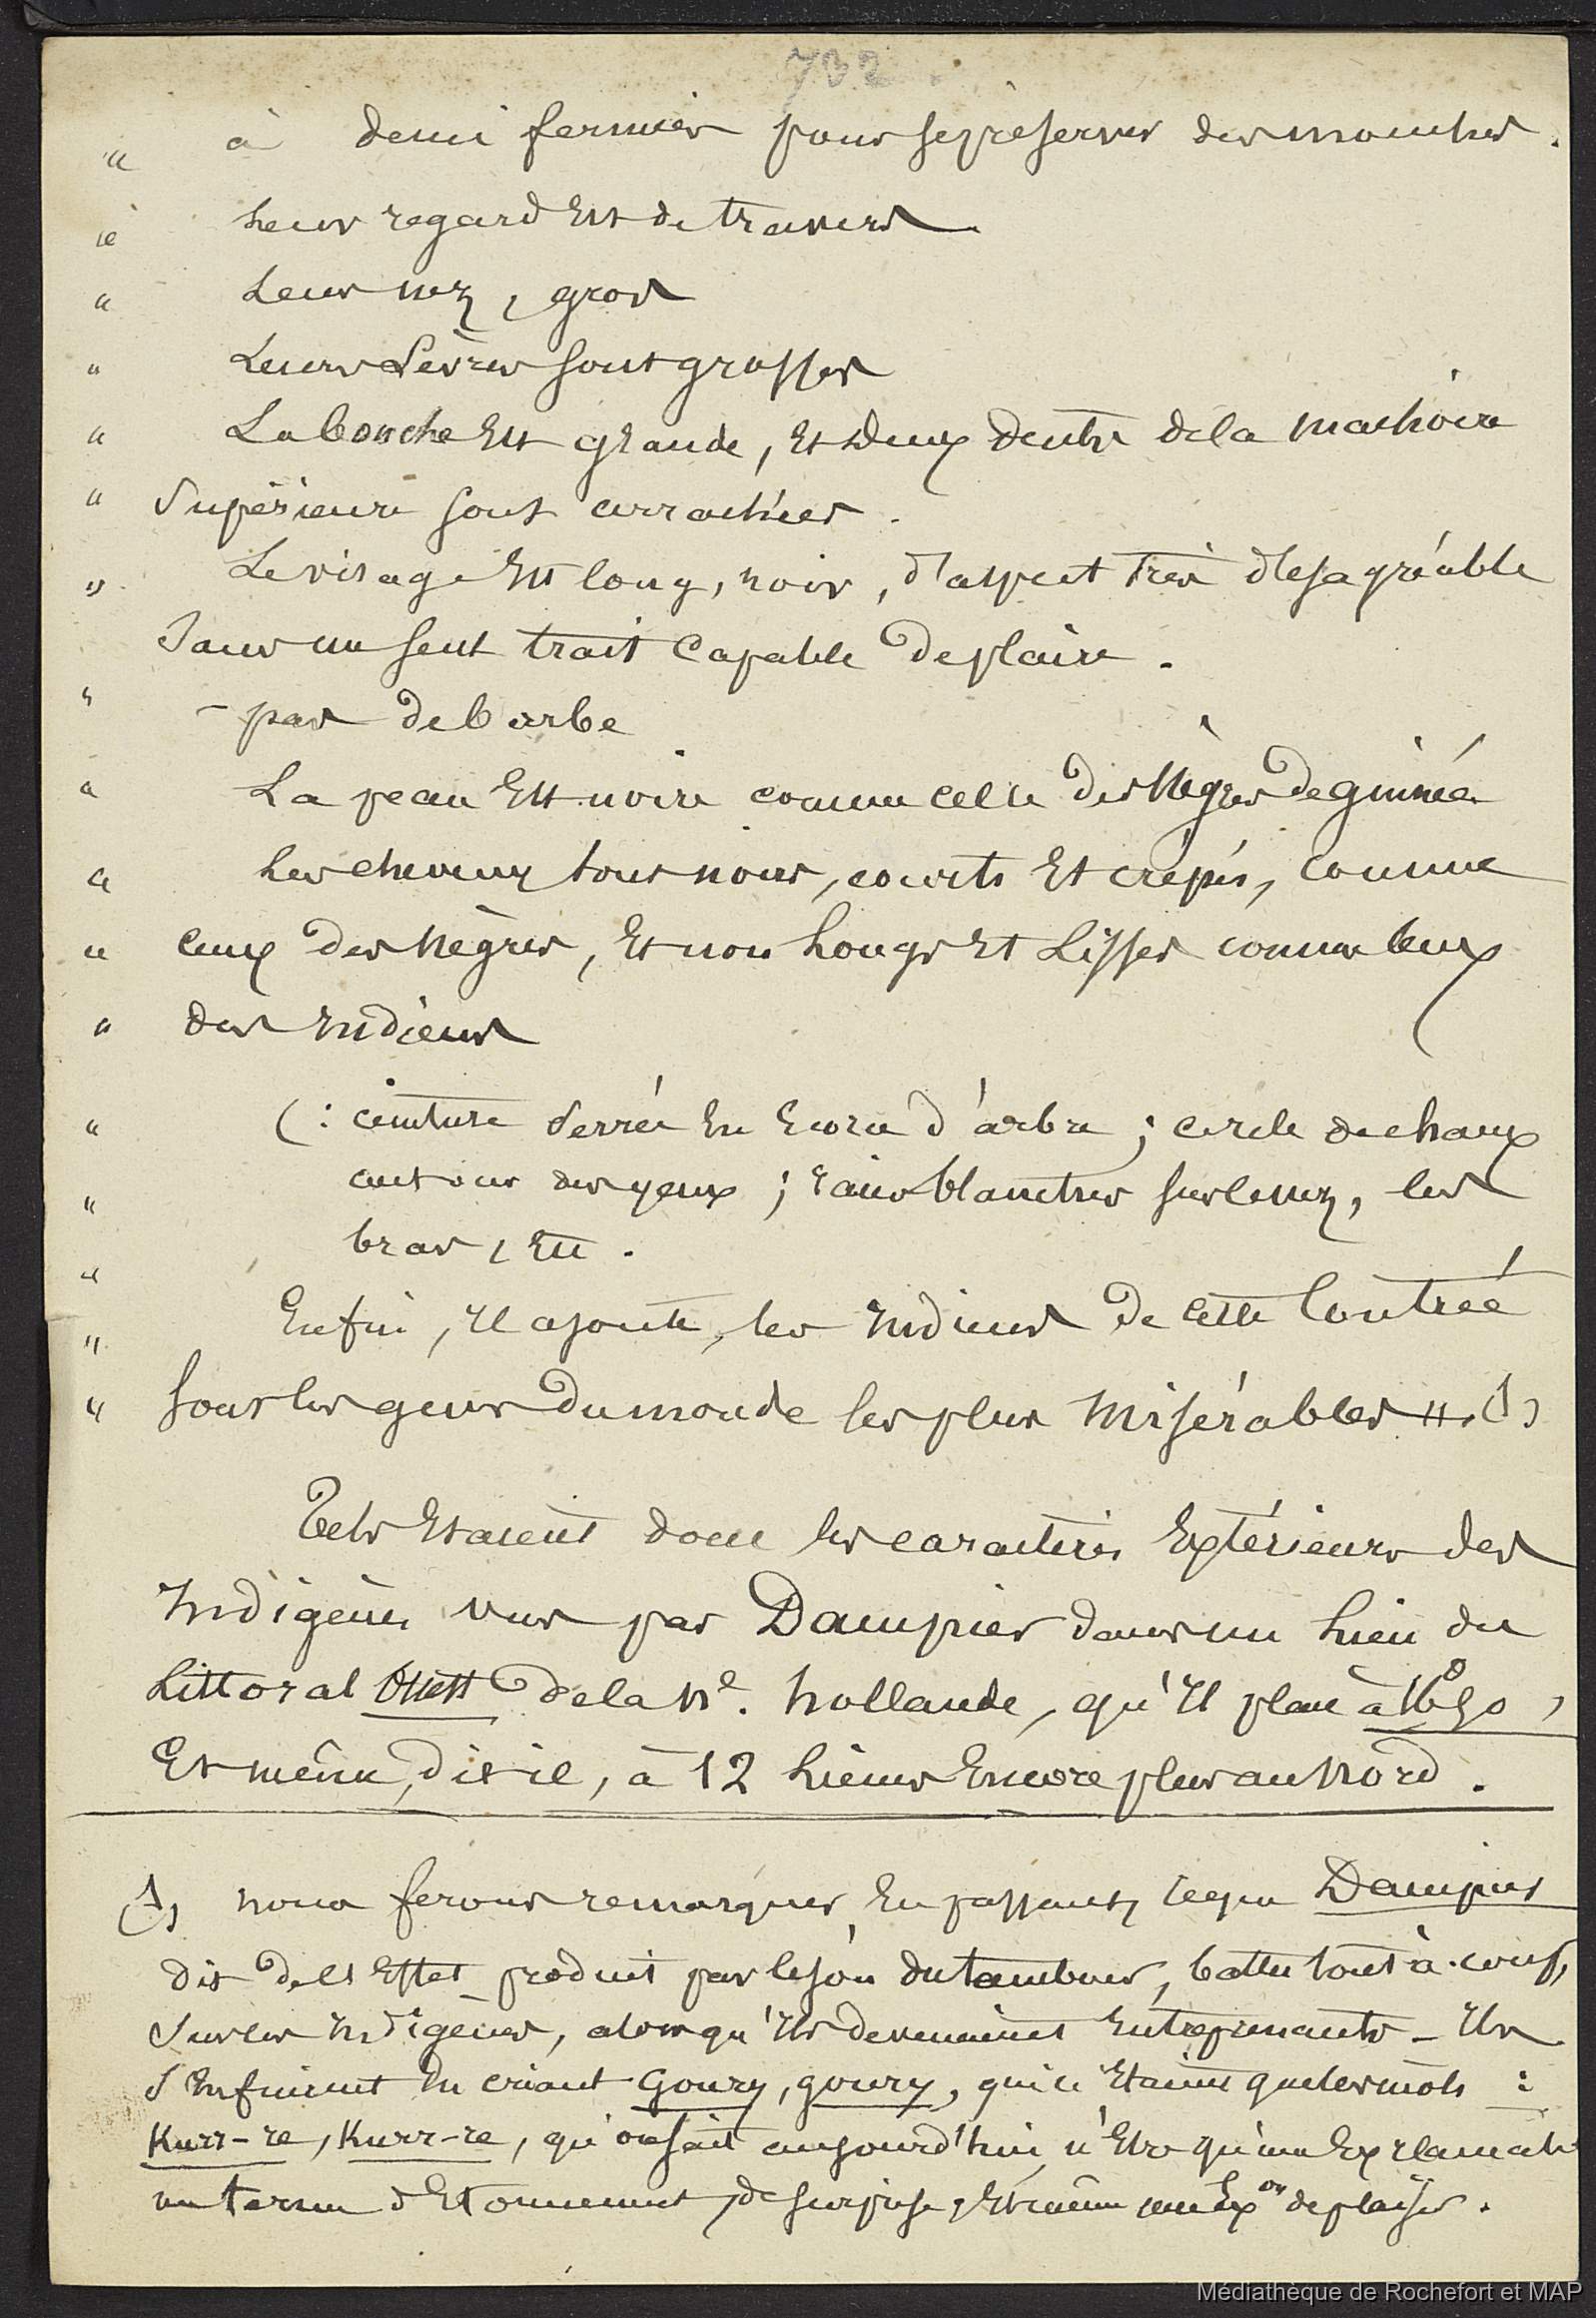 732
" à demi fermées pour se préserver des mouches.
" Leur regard est de travers
" Leur nez, gros
" Leurs Lèvres sont grosses
" La bouche est grande, et deux dents de la machoire
" Supérieure sont arrachées.
" Le visage est long, noir, d'aspect très désagréable
Sans un seul trait capable de plaire.
" - pas de barbe
" La peau est noire comme celle des Nègres de guinée
" Les cheveux sont noirs, courts et crépés, comme
" ceux des Nègres, et non Longs et Lisses comme ceux
" des indiens
" (: ceinture serrée en Ecorce d'arbre ; cercle de chaux
" autour des yeux ; raies blanches sur le nez, les
" bras, etc.
" Enfin, il ajoute, les indiens de cette Contrée
" sont les gens du monde les plus misérables ". (1)
Tels Etaient donc les caractères Extérieurs des
indigènes vus par Dampier dans un Lieu du
Littoral Ouest de la Nle. hollande, qu'il place à 16°50,
Et même, dit-il, à 12 Lieues Encore plus au Nord.
(1) nous ferons remarquer, En passant, ce que Dampier
dit de l'Effet produit par le son du tambour, battu tout à-coup,
Sur les indigènes, alors qu'ils devenaient Entreprenants - ils
s'Enfuirent en criant Goury, goury, qui n'Etaient que les mots :
Kurr-re, Kurr-re, qu'on sait aujourd'hui n'Etre qu'une Exclamatn
un terme d'Etonnement, de surprise, Et même une Expon de plaisir.
Médiathèque de Rochefort et MAP